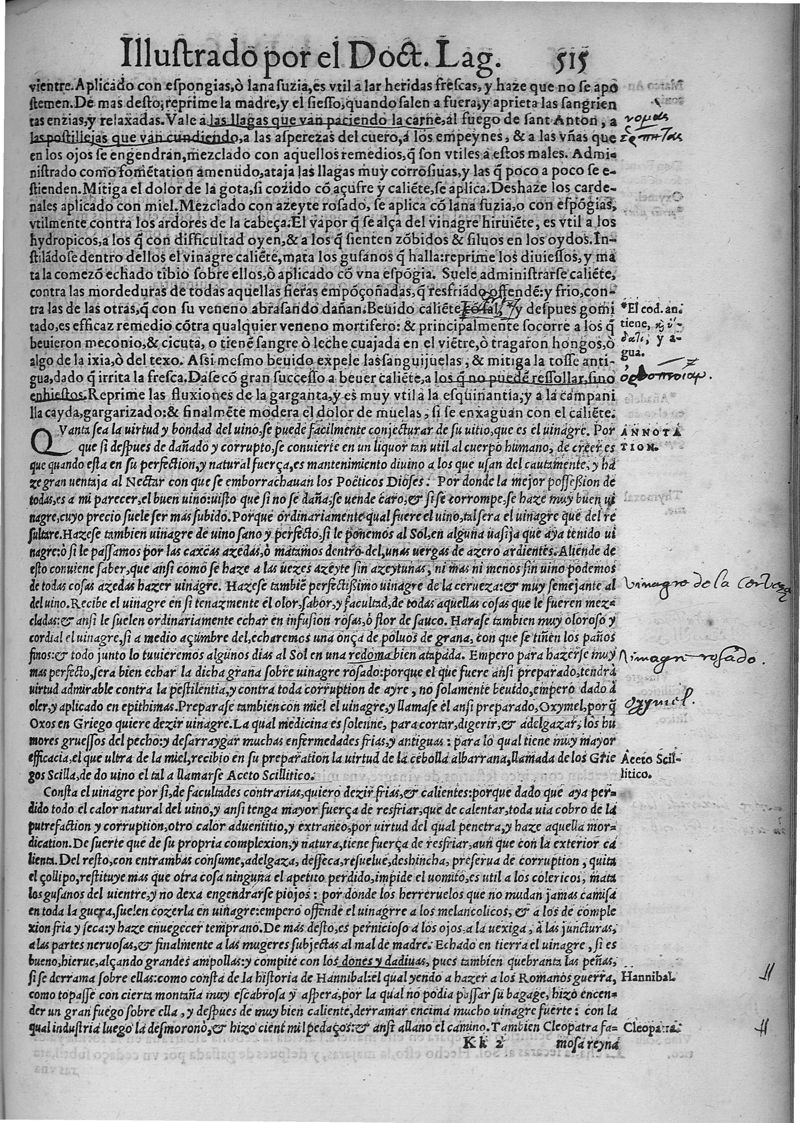 Illustrado por el Doct. Lag. 515
vientre. Aplicado con espongias, ò lana suzia, es vtil a lar heridas frescas, y haze que no se apo
stemen. De mas desto, reprime la madre, y el siesso, quando salen a fuera, y aprieta las sangrien
tas enzias, y relaxadas. Vale á las llagas que van paciendo la carne, al fuego de sant Anton, a
las postillejas que van cundiendo, a las asperezas del cuero, á los empeynes, & a las vñas que
en los ojos se engendran, mezclado con aquellos remedios, q̃ son vtiles a estos males. Admi-
nistrado como fomẽtation amenudo, ataja las llagas muy corrosiuas, y las q̃ poco a poco se e-
stienden. Mitiga el dolor de la gota, si cozido cõ açufre y caliẽte, se aplica. Deshaze los carde-
nales aplicado con miel. Mezclado con azeyte rosado, se aplica cõ lana suzia, o con espõgias,
vtilmente contra los ardores de la cabeça. El vapor q̃ se alça del vinagre hiruiẽte, es vtil a los
hydropicos, a los q̃ con difficultad oyen, & a los q̃ sienten zõbidos & siluos en los oydos. In-
stilãdose dentro dellos el vinagre caliẽte, mata los gusanos q̃ halla: reprime los diuiessos, y ma
ta la comezõ echado tibio sobre ellos, ò aplicado cõ vna espõgia. Suele administrarse caliẽte,
contra las mordeduras de todas aquellas fieras empõçoñadas, q̃ resfriãdo offendẽ: y frio, con-
tra las de las otras, q̃ con su veneno abrasando dañan. Beuido caliẽte y despues gomi
tado, es efficaz remedio cõtra qualquier veneno mortifero: & principalmente socorre a los q̃
beuieron meconio, & cicuta, o tienẽ sangre ò leche cuajada en el viẽtre, ò tragaron hongos, ò
algo de la ixia, ò del texo. Assi mesmo beuido expele las sanguijuelas, & mitiga la tosse anti-
gua, dado q̃ irrita la fresca. Dase cõ gran successo a beuer caliẽte, a los q̃ no puedẽ ressollar, sino
enhiestos. Reprime las fluxiones de la garganta, y es muy vtil a la esquinantia, y a la campani
lla cayda, gargarizado: & finalmẽte modera el dolor de muelas, si se enxaguan con el caliẽte.
*El cod. an.
tiene,
y a-
gua.
νομας
ορθοπνοιαν.
ANNOTA
TION.
QVanta sea la virtud y bondad del uino, se puede facilmente conjecturar de su uitio, que es el uinagre. Por
que si despues de dañado y corrupto, se conuierte en un liquor tan util al cuerpo humano, de creer es
que quando esta en su perfection, y natural fuerça, es mantenimiento diuino a los que usan del cautamente, y ha
ze gran uentaja al Nectar con que se emborrachauan los Poëticos Dioses. Por donde la mejor possession de
todas, es a mi parecer, el buen uino: uisto que si no se daña, se uende caro, & si se corrompe, se haze muy buen ui
nagre, cuyo precio suele ser mas subido. Porque ordinariamente qual fuere el uino, tal sera el uinagre que del re
sultare. Hazese tambien uinagre de uino sano y perfecto, si le ponemos al Sol, en alguna uasija que aya tenido ui
nagre: ò si le passamos por las caxcas azedas, ò matamos dentro del, unas uergas de azero ardientes. Aliende de
esto conuiene saber, que ansi como se haze a las uezes azeyte sin azeytunas, ni mas ni menos sin uino podemos
de todas cosas azedas hazer uinagre. Hazese tambiẽ perfectissimo uinagre de la cerueza: & muy semejante al
del uino. Recibe el uinagre en si tenazmente el olor, sabor, y facultad, de todas aquellas cosas que le fueren mez-
cladas: & ansi le suelen ordinariamente echar en infusion rosas, ò flor de sauco. Harase tambien muy oloroso y
cordial el uinagre, si a medio açumbre del, echaremos una onça de poluos de grana, con que se tiñen los paños
finos: & todo junto lo tuuieremos algunos dias al Sol en una redoma bien atapada. Empero para hazerse muy
mas perfecto, sera bien echar la dicha grana sobre uinagre rosado: porque el que fuere ansi preparado, tendrá
uirtud admirable contra la pestilentia, y contra toda corruption de ayre, no solamente beuido, empero dado à
oler, y aplicado en epithimas. Preparase tambien con miel el uinagre, y llamase el ansi preparado, Oxymel, por q̃
Oxos en Griego quiere dezir uinagre. La qual medicina es solenne, para cortar, digerir, & adelgazar, los hu
mores gruessos del pecho: y desarraygar muchas enfermedades frias, y antiguas: para lo qual tiene muy mayor
efficacia, el que ultra de la miel, recibio en su preparation la uirtud de la cebolla albarrana, llamada de los Grie
gos Scilla, de do uino el tal a llamarse Aceto Scillitico.
Vinagre de la cerueza
Vinagre rosado.
Oxymel.
Aceto Scil-
litico.
Consta el uinagre por si, de facultades contrarias, quiero dezir frias, & calientes: porque dado que aya per-
dido todo el calor natural del uino, y ansi tenga mayor fuerça de resfriar, que de calentar, toda uia cobro de la
putrefaction y corruption, otro calor aduentitio, y extraneo, por uirtud del qual penetra, y haze aquella mor-
dication. De suerte que de su propria complexion, y natura, tiene fuerça de resfriar, aun que con la exterior ca
lienta. Del resto, con entrambas consume, adelgaza, desseca, resuelue, deshincha, preserua de corruption, quita
el çollipo, restituye mas que otra cosa ninguna el apetito perdido, impide el uomito, es util a los colericos, mata
los gusanos del uientre, y no dexa engendrarse piojos: por donde los herreruelos que no mudan jamas camisa
en toda la guerra, suelen cozerla en uinagre: empero offende el uinagre a los melancolicos, & á los de comple
xion fria y seca: y haze enuegecer temprano. De mas desto, es pernicioso a los ojos, a la uexiga, á las juncturas,
a las partes neruosas, & finalmente a las mugeres subjectas al mal de madre. Echado en tierra el uinagre, si es
bueno, hierue, alçando grandes ampollas: y compite con los dones y dadiuas, pues tambien quebranta las peñas,
si se derrama sobre ellas: como consta de la historia de Hannibal: el qual yendo a hazer a los Romanos guerra,
como topasse con cierta montaña muy escabrosa y aspera, por la qual no podia passar su bagage, hizo encen-
der un gran fuego sobre ella, y despues de muy bien caliente, derramar encima mucho uinagre fuerte: con la
qual industria luego la desmoronò, & hizo cient mil pedaços: & ansi allano el camino. Tambien Cleopatra fa-
Hannibal.
Cleopatra.
Kk 2 mosa reyna